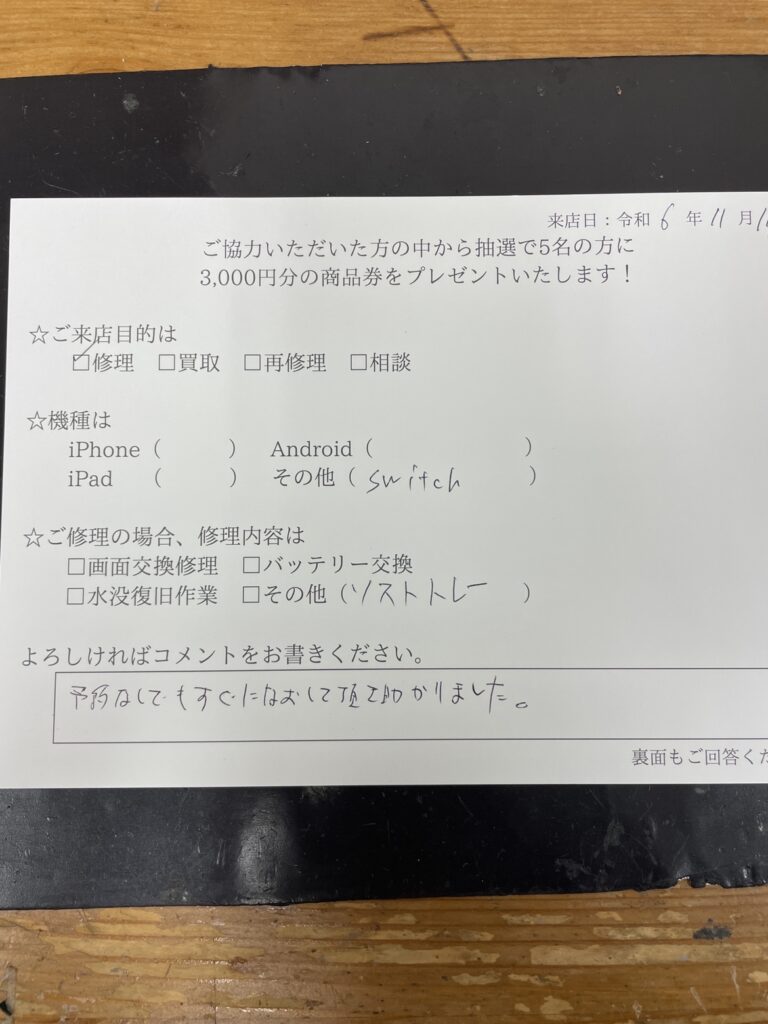 来店日：令和 6 年 11 月
ご協力いただいた方の中から抽選で5名の方に
3,000円分の商品券をプレゼントいたします！
☆ご来店目的は
☑修理　□買取　□再修理　□相談
☆機種は
iPhone（　　　）　Android（　　　　　　　）
iPad　（　　　）　その他（ switch　　　）
☆ご修理の場合、修理内容は
□画面交換修理　□バッテリー交換
□水没復旧作業　□その他（ソストトレー　）
よろしければコメントをお書きください。
予約なしでもすぐになおして頂て助かりました。
裏面もご回答くだ